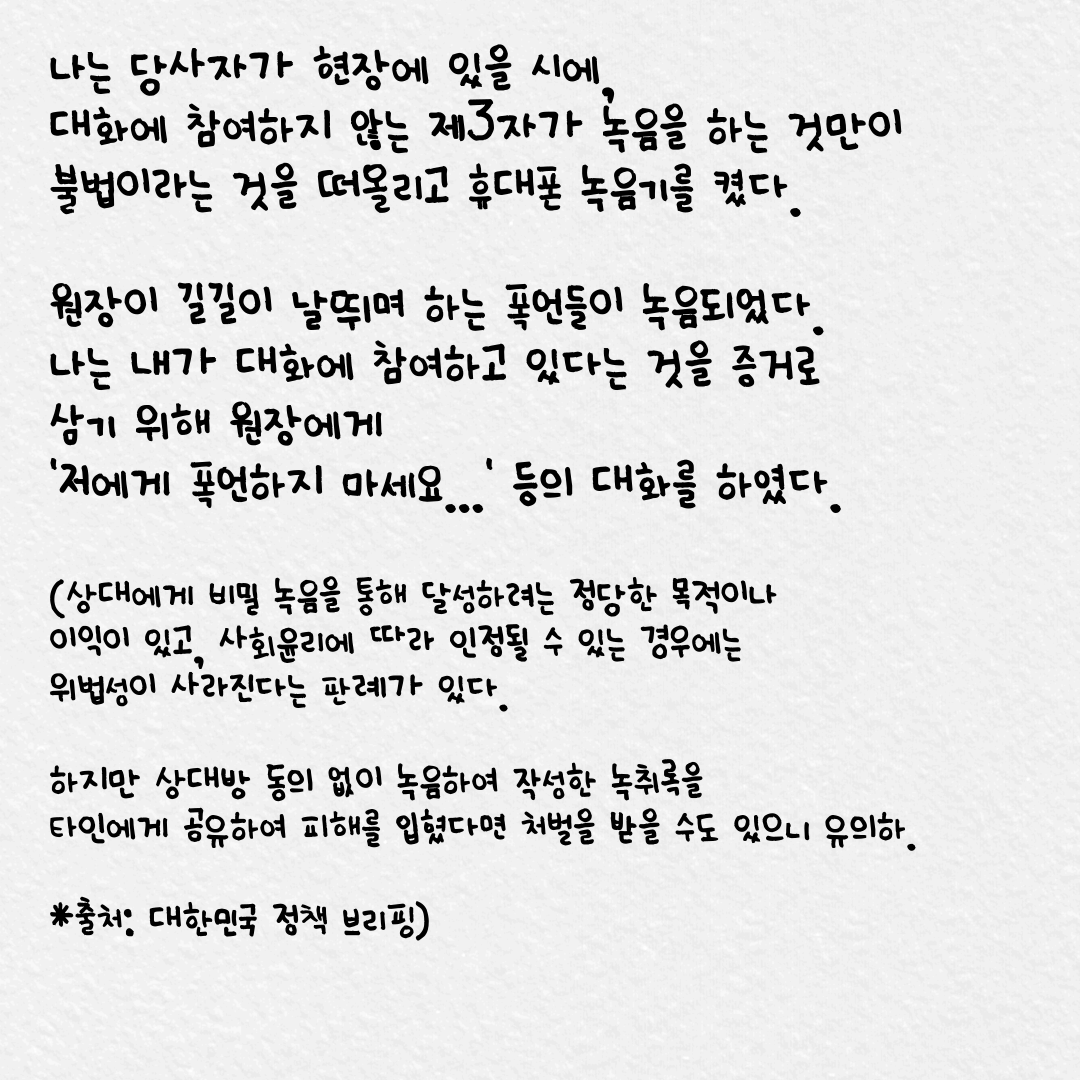 나는 당사자가 현장에 있을 시에,
대화에 참여하지 않는 제3자가 녹음을 하는 것만이
불법이라는 것을 떠올리고 휴대폰 녹음기를 켰다.
원장이 길길이 날뛰며 하는 폭언들이 녹음되었다.
나는 내가 대화에 참여하고 있다는 것을 증거로
삼기 위해 원장에게
'저에게 폭언하지 마세요...' 등의 대화를 하였다.
(상대에게 비밀 녹음을 통해 달성하려는 정당한 목적이나
이익이 있고, 사회윤리에 따라 인정될 수 있는 경우에는
위법성이 사라진다는 판례가 있다.
하지만 상대방 동의 없이 녹음하여 작성한 녹취록을
타인에게 공유하여 피해를 입혔다면 처벌을 받을 수도 있으니 유의하.
*출처: 대한민국 정책 브리핑)